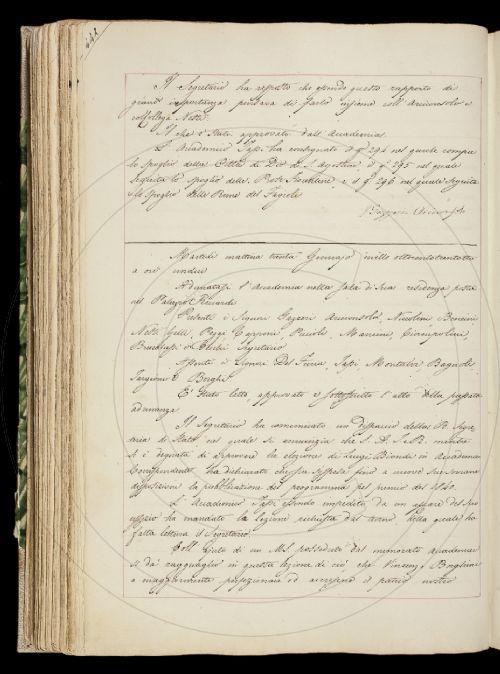 Il Segretario ha risposto che essendo questo rapporto di
grande importanza pensava di farlo insieme coll' Arciconsolo e
collega Nesti.
Il che è stato approvato dall' Accademia.
L' Accademico ha consegnato il q.º 294 nel quale compie
lo spoglio della Città di Dio di S. Agostino, il q.º 295 nel quale
seguita lo spoglio delle Prose Fiorentine, e il q.º 296 nel quale seguita
lo spoglio delle Rime del Fagioli
Arciconsolo
Martedì mattina trenta Gennajo mille ottocento trentotto
a ore undici
Adunatasi l' Accademia nella sala di sua residenza posta
nel Palazzo Riccardi
Presenti i Signori Arciconsolo, Niccolini, Bencini
Nesti, Gelli, Capponi, Mancini, Ciampolini,
Segretario
Assenti i Signori Del Furia, Montalvi, Bagnoli,
Targioni e Borghi
E' stato letto, approvato e sottoscritto l' atto della passata
adunanza
Il Segretario ha comunicato un Dispaccio della R. Segre
teria di Stato, nel quale si annunzia che S. A. I. e R. mentre
si è degnata di approvare la elezione di Luigi Biondi in Accademico
Corrispondente, ha dichiarato che sia sospesa fino a nuove sue sovrane
disposizioni la pubblicazione del programma pel premio del 1840.
L' Accademico essendo impedito da un affare del suo
uffizio ha mandato la lezione richiesta dal turno, della quale ha
fatto lettura il Segretario.
Coll' ajuto di un MS. posseduto dal menovato Accademico
si dà ragguaglio in questa lezione di ciò, che Vincenzo Borghini
a maggiormente perfezionare ed accrescere il patrio nostro